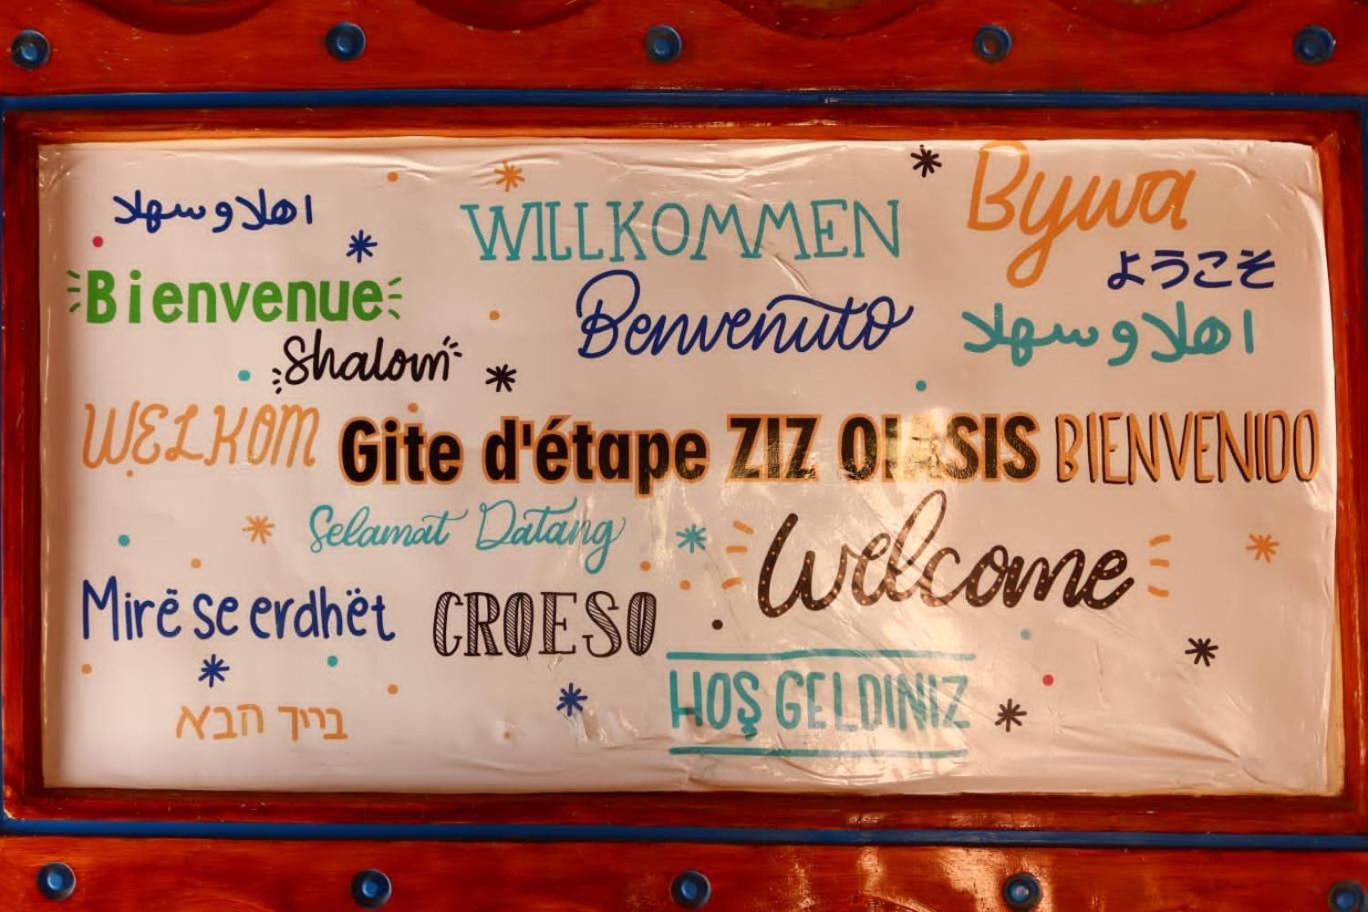 اهلا وسهلا
WILLKOMMEN
Bywa
ようこそ
Bienvenue
Benvenuto
اهلا وسهلا
Shalom
WELKOM
Gite d'étape ZIZ OIASIS
BIENVENIDO
Selamat Datang
Welcome
Mirë se erdhët
CROESO
HOŞ GELDINIZ
ברוך הבא